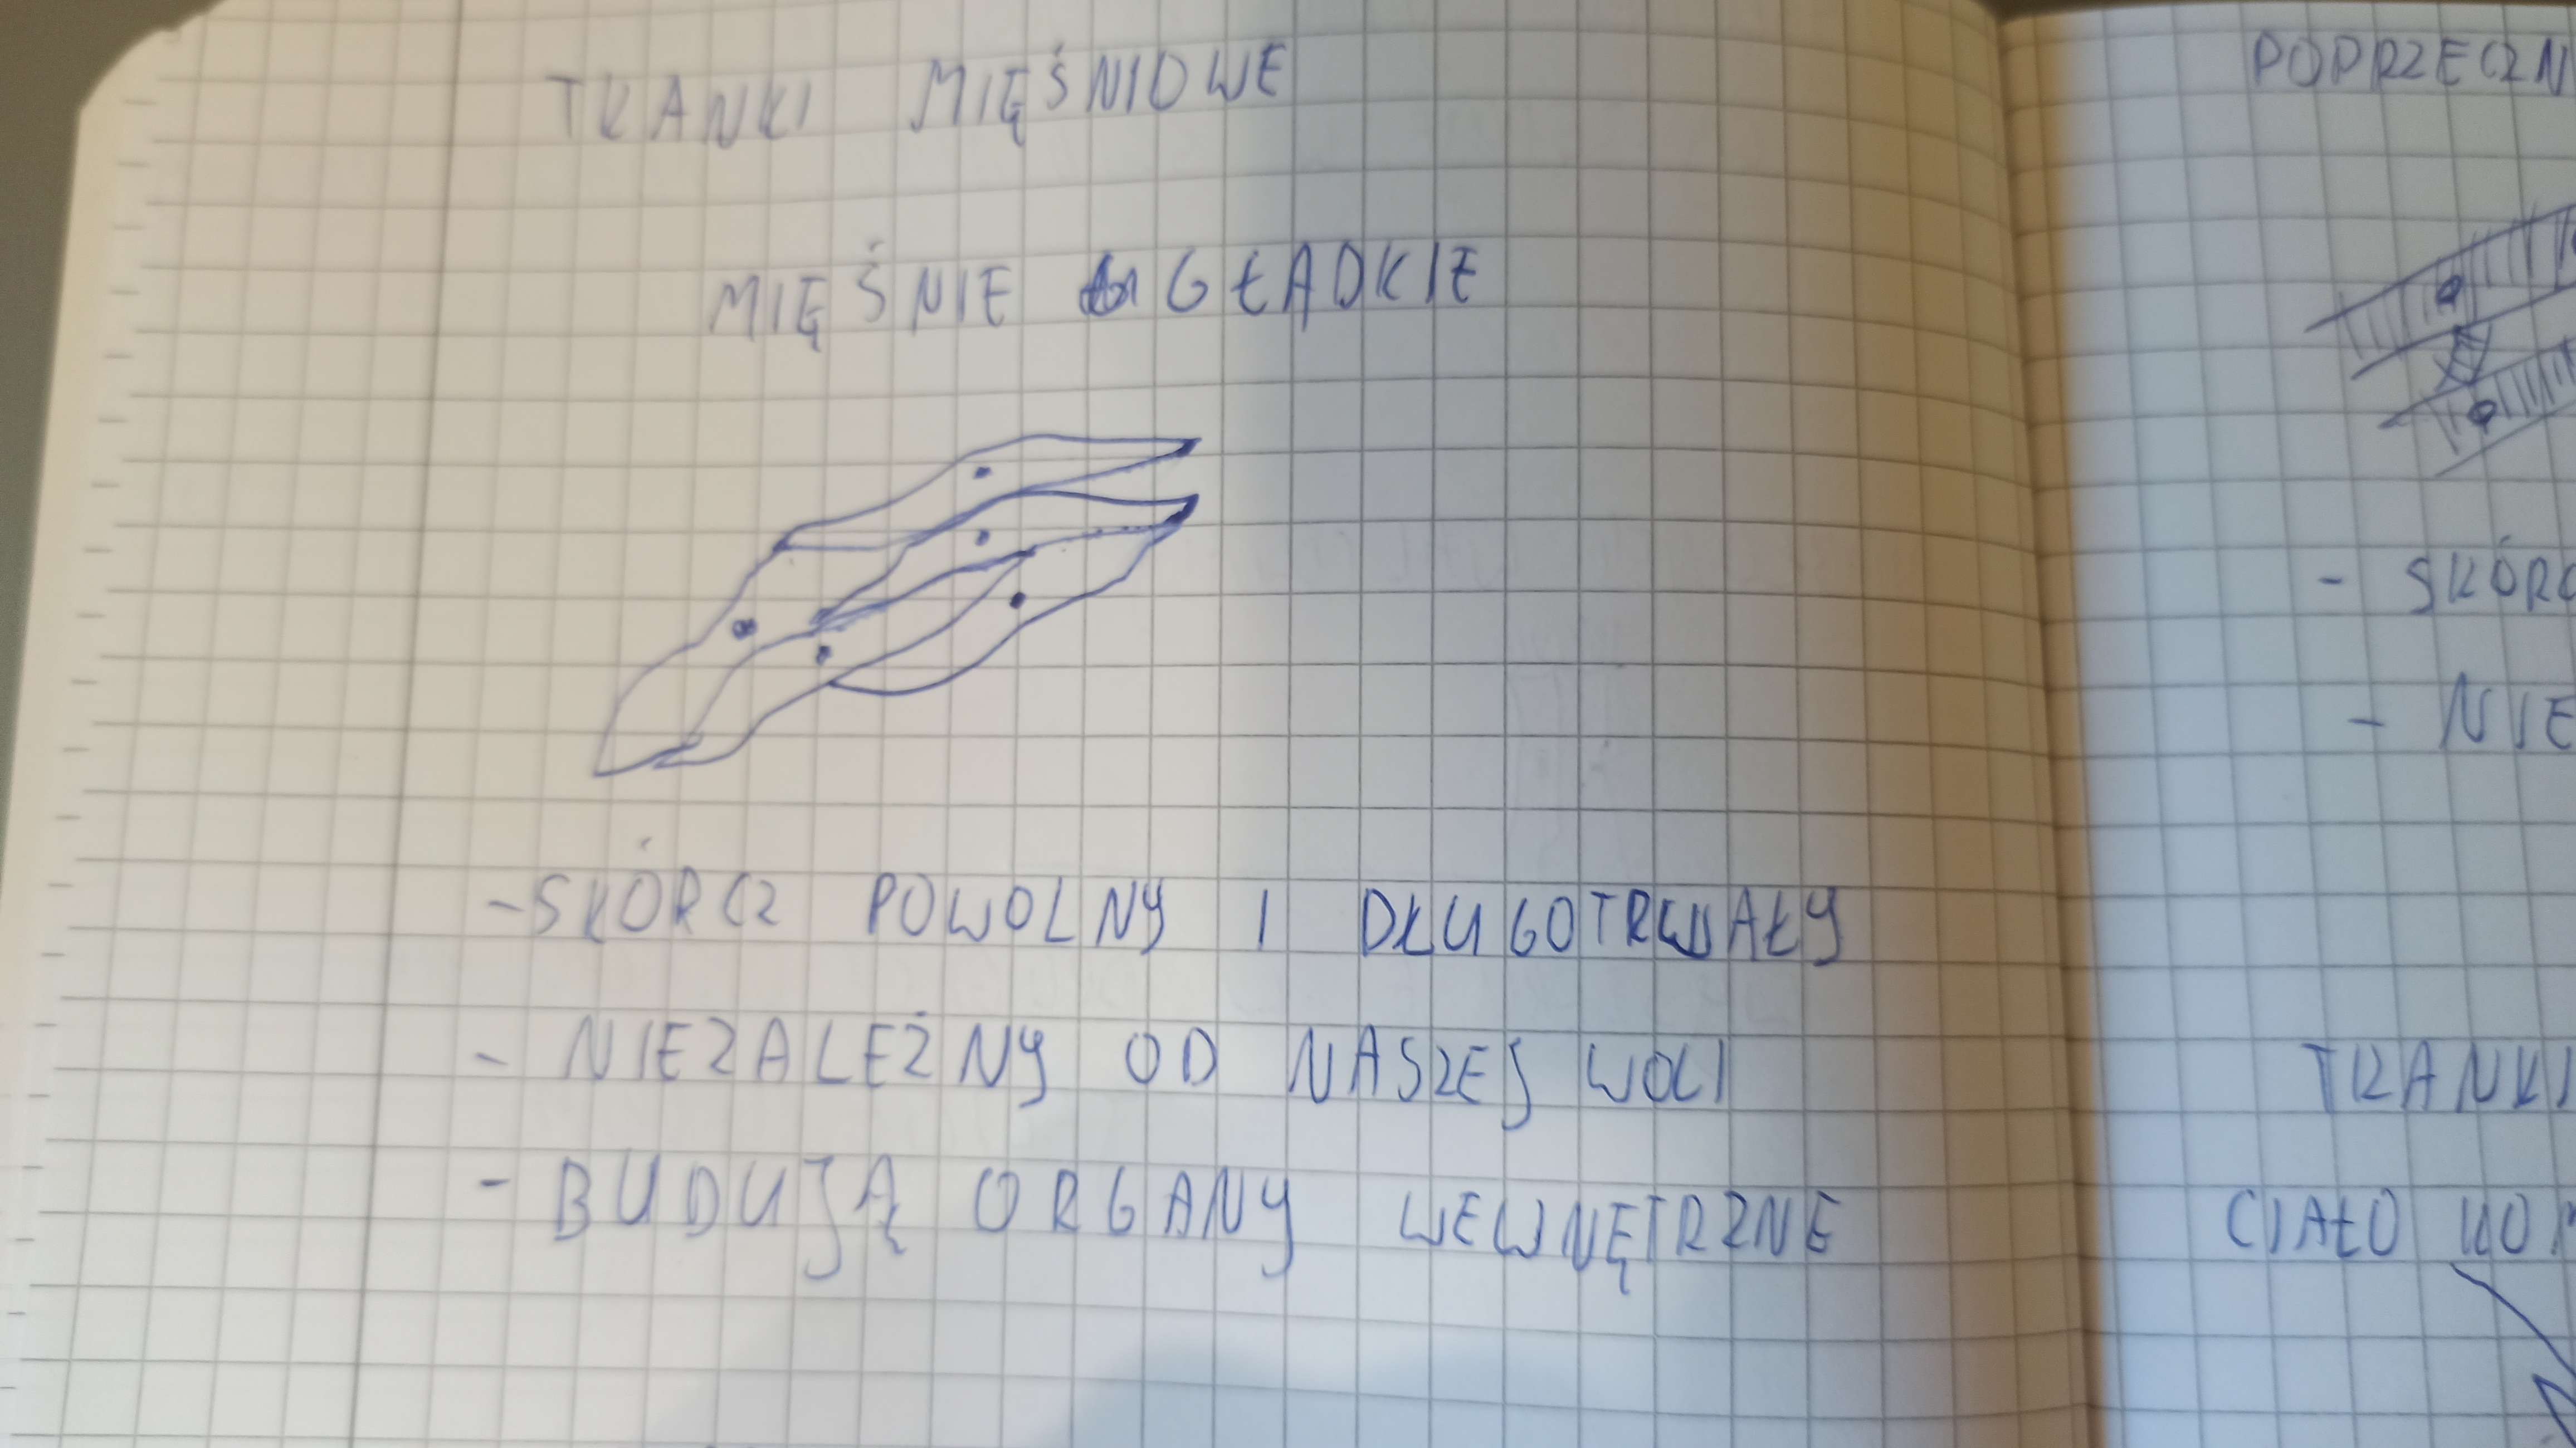 TKANKI MIĘŚNIOWE
MIĘŚNIE GŁADKIE
-SKÓRCZ POWOLNY I DŁUGOTRWAŁY
- NIEZALEŻNY OD NASZEJ WOLI
- BUDUJĄ ORGANY WEWNĘTRZNE
POPRZECZN
- SKÓRC
- NIE
TKANKI
CIAŁO KOM